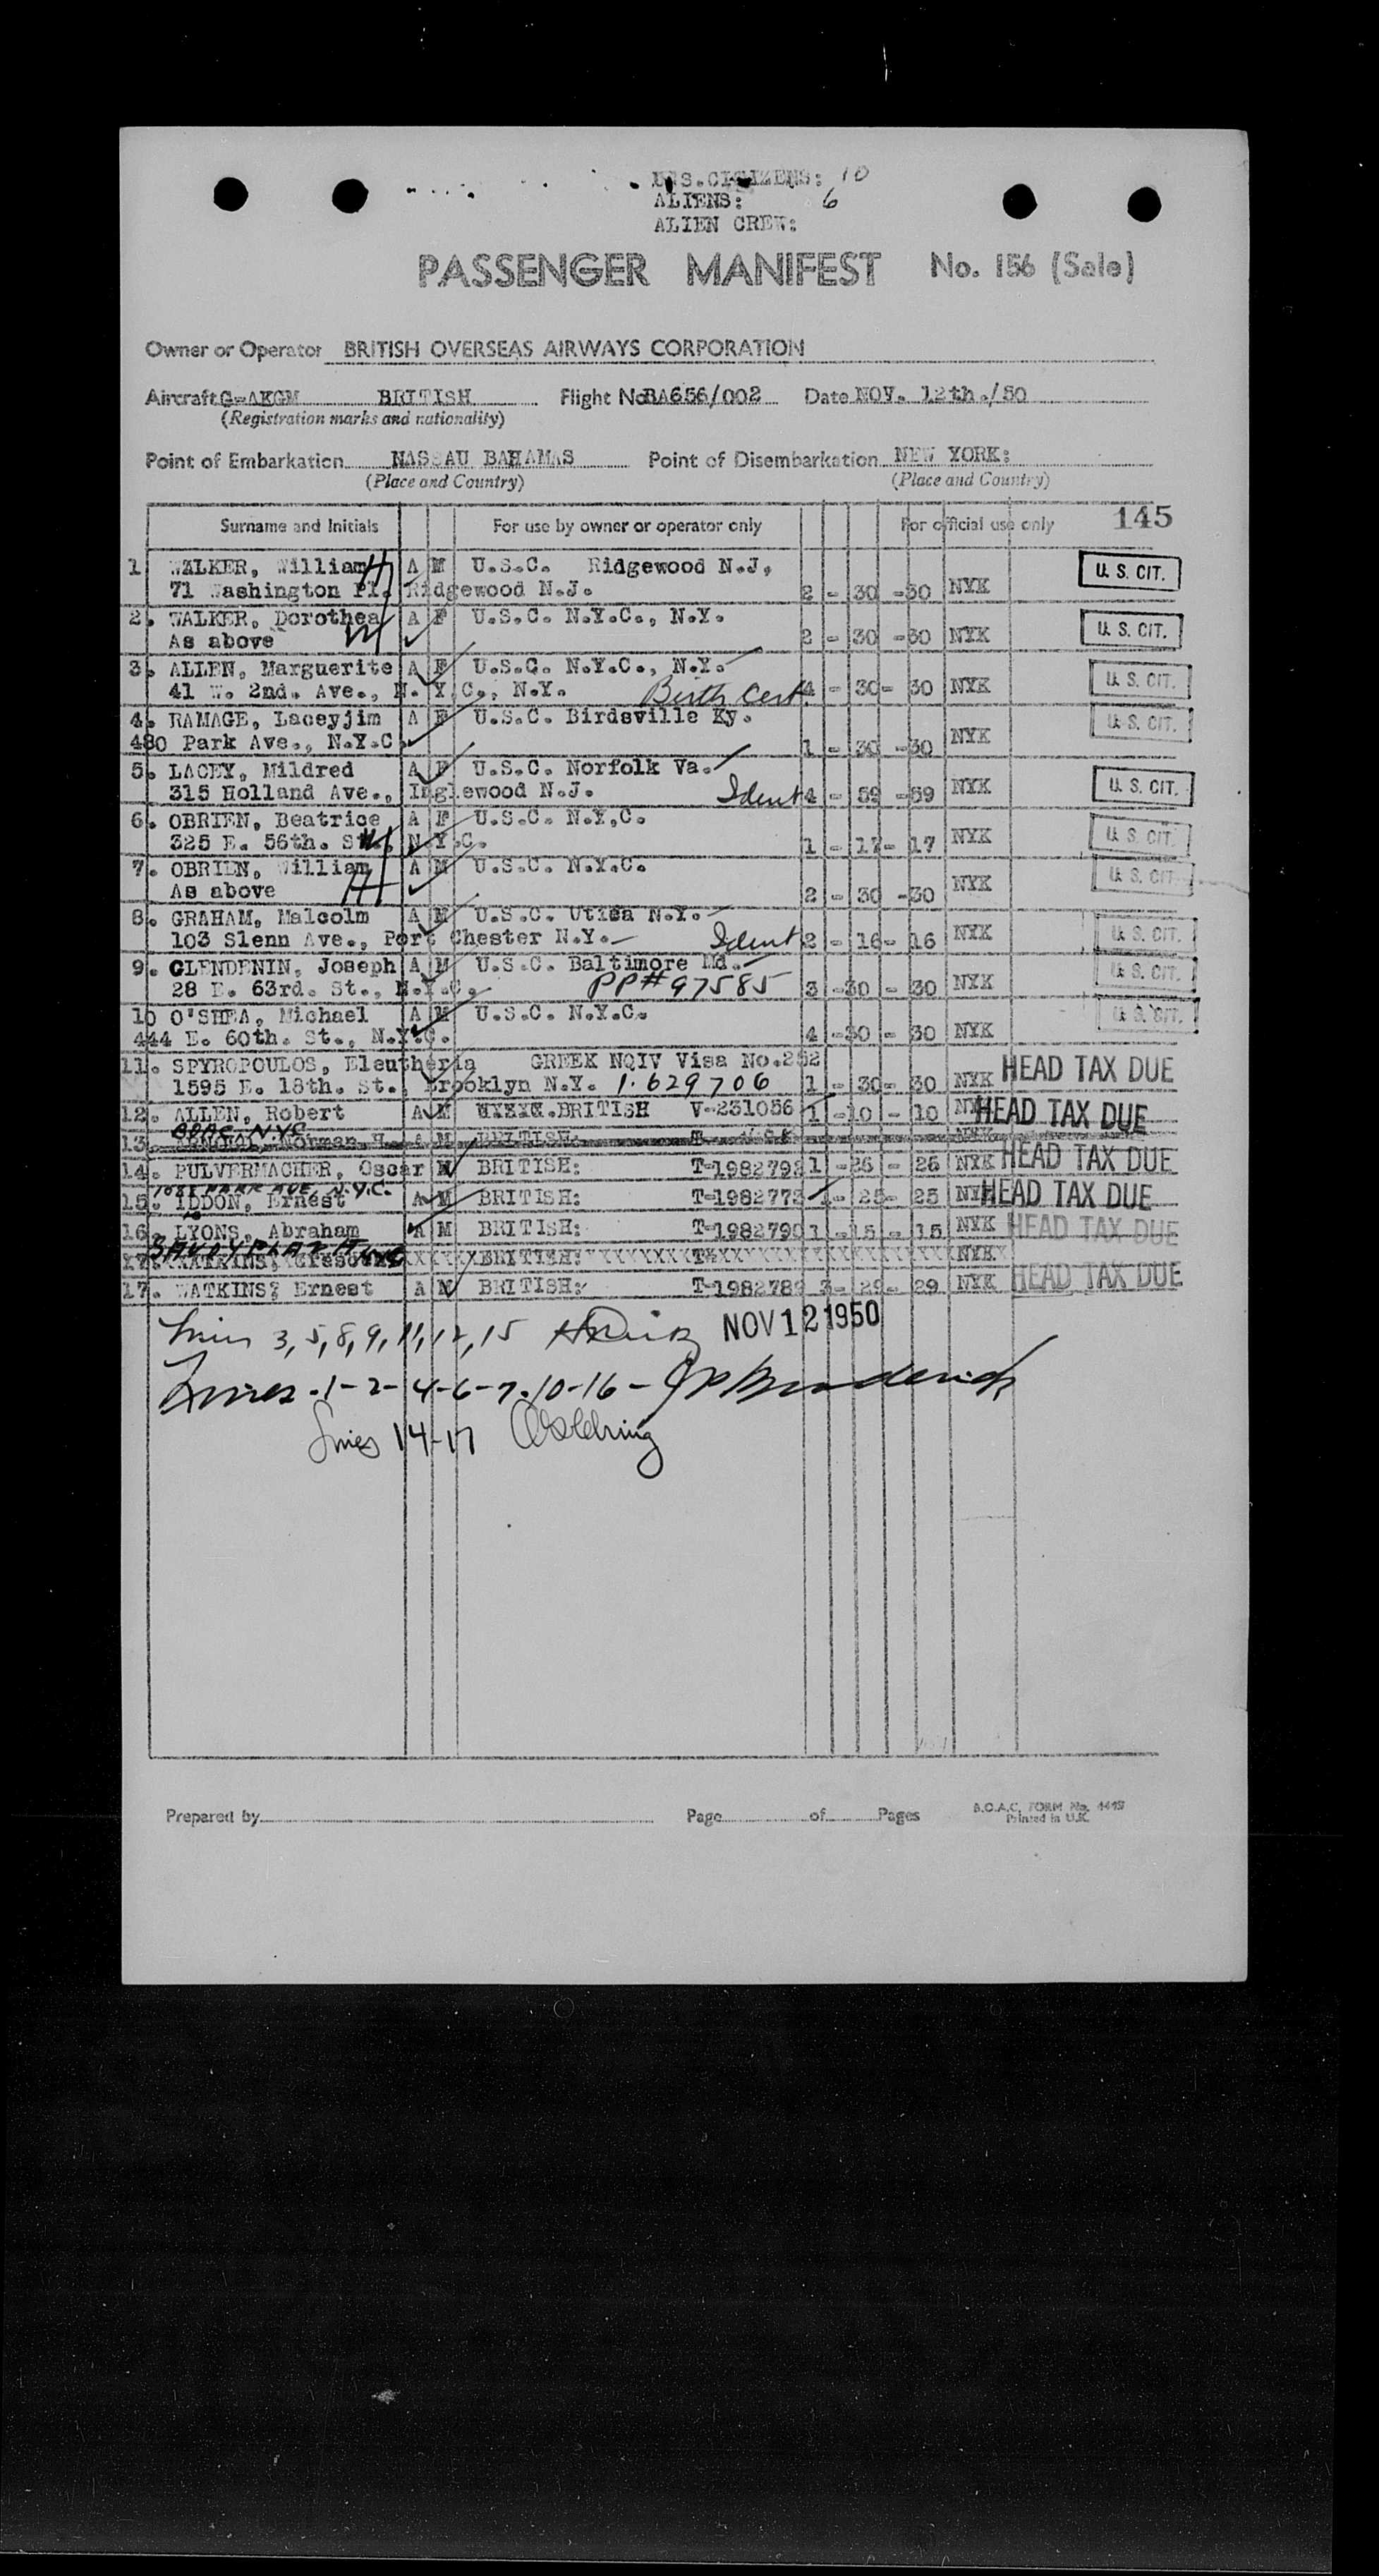 U.S.CITIZENS: 10
ALIENS: 6
ALIEN CREW:
PASSENGER MANIFEST No. 156 (Sale)
Owner or Operator BRITISH OVERSEAS AIRWAYS CORPORATION
Aircraft G-AKGM BRITISH Flight No. BA656/002 Date NOV. 12th./50
(Registration marks and nationality)
Point of Embarkation NASSAU BAHAMAS Point of Disembarkation NEW YORK:
(Place and Country) (Place and Country)
Surname and Initials For use by owner or operator only For official use only 145
1 WALKER, William A M U.S.C. Ridgewood N.J. U. S. CIT.
71 Washington Pl. Ridgewood N.J. 2 - 30 -30 NYK
2. WALKER, Dorothea A F U.S.C. N.Y.C., N.Y. U. S. CIT.
As above 2 - 30 -30 NYK
3. ALLEN, Marguerite A F U.S.C. N.Y.C., N.Y. U. S. CIT.
41 W. 2nd. Ave., N.Y.C., N.Y. Birth Cert. 4 - 30- 30 NYK
4. RAMAGE, Laceyjim A F U.S.C. Birdsville Ky. U. S. CIT.
480 Park Ave., N.Y.C. 1 - 30 -30 NYK
5. LACEY, Mildred A F U.S.C. Norfolk Va. U. S. CIT.
315 Holland Ave., Inglewood N.J. Ident 4 - 59 -59 NYK
6. OBRIEN, Beatrice A F U.S.C. N.Y,C. U. S. CIT.
325 E. 56th. St., N.Y.C. 1 - 17- 17 NYK
7. OBRIEN, William A M U.S.C. N.Y.C. U. S. CIT.
As above 2 - 30 -30 NYK
8. GRAHAM, Malcolm A M U.S.C. Utica N.Y. U. S. CIT.
103 Slenn Ave., Port Chester N.Y. Ident 2 - 16- 16 NYK
9. CLENDENIN, Joseph A M U.S.C. Baltimore Md. U. S. CIT.
28 E. 63rd. St., N.Y.C. PP# 97585 3 -30 - 30 NYK
10 O'SHEA, Michael A M U.S.C. N.Y.C. U. S. CIT.
444 E. 60th. St., N.Y.C. 4 -30 - 30 NYK
11. SPYROPOULOS, Eleutheria GREEK NQIV Visa No.252 HEAD TAX DUE
1595 E. 18th. St., Brooklyn N.Y. 1.629706 1 - 30- 30 NYK
12. ALLEN, Robert A M BRITISH V-231056 1 -10 - 10 NYK HEAD TAX DUE
BOAC NYC
13. Norman A M BRITISH: NYK
14. PULVERMACHER, Oscar M BRITISH: T-1982792 1 -26 - 26 NYK HEAD TAX DUE
PARK AVE N.Y.C.
15. IDDON, Ernest A M BRITISH: T-1982773 1- 25- 25 NYK HEAD TAX DUE
16. LYONS, Abraham A M BRITISH: T-1982790 1 -15 - 15 NYK HEAD TAX DUE
SAVOY PLAZA H NYC
17. WATKINS, BRITISH: NYK
17. WATKINS; Ernest A M BRITISH: T-1982789 3- 29- 29 NYK HEAD TAX DUE
Lines 3, 5, 8, 9, 11, 12, 15 NOV 12 1950
Lines-1-2-4-6-7-10-16- Broderick
Lines 14-17
Prepared by Page of Pages B.O.A.C. FORM No. 4449
Printed in U.K.